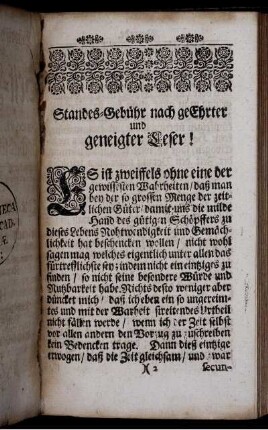 Standes-Gebühr nach geEhrter
und
geneigter Leser!
ES ist zweiffels ohne eine der
gewissesten Wahrheiten / daß man
bey der so grossen Menge der zeit-
lichen Güter / damit uns die milde
Hand des gütigen Schöpffers zu
dieses Lebens Nohtwendigkeit und Gemäch-
lichkeit hat beschencken wollen / nicht wohl
sagen mag welches eigentlich unter allen das
fürtrefflichste sey: indem nicht ein eintziges zu
finden / so nicht seine besondere Würde und
Nutzbarkeit habe. Nichts desto weniger aber
düncket mich / daß ich eben ein so ungereim-
tes und mit der Warheit streitendes Urtheil
nicht fällen werde / wenn ich der Zeit selbst
vor allen andern den Vorzug zuzuschreiben
kein Bedencken trage. Dann dieß eintzige
erwogen / daß die Zeit gleichsam / und zwar
)( 2 secun-
TECA
CAD.
Æ